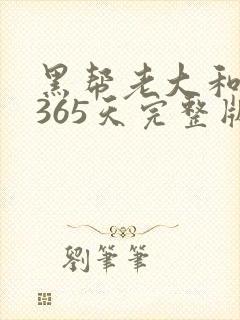 黑帮老大和
365天完整版
劉筆筆